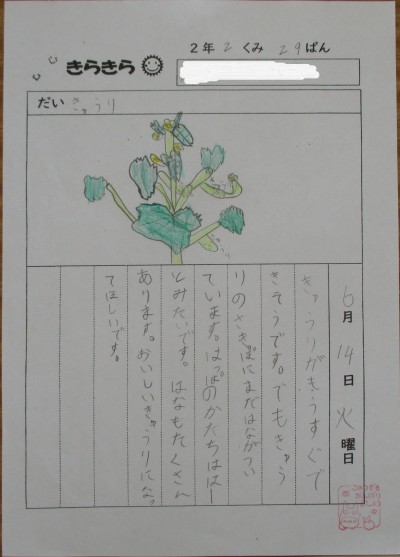 2年2くみ29ばん
きらきら
だい きゅうり
6月14日火曜日
きゅうりがもうすぐで
きそうです。でもきゅう
りのさきぽにまだはながつい
ています。はっぱのかたちははー
とみたいです。はなもたくさん
あります。おいしいきゅうりになっ
てほしいです。